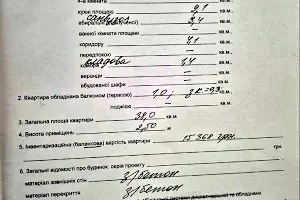 4-а кімната кв.м.
кухні площею 9,1 кв.м.
санвузол 3,4 кв.м.
ванної кімнати площею кв.м.
коридору 7,1 кв.м.
передпокою кв.м.
кладова 1,4 кв.м.
веранди кв.м.
вбудованої шафи кв.м.
2. Квартира обладнана балконом (терасою) 1,0
лоджією кв.м.
3. Загальна площа квартири 38,0 кв.м
4. Висота приміщень 2,50 м.
5. Інвентаризаційна (балансова) вартість квартири 15 368 грн
6. Загальні відомості про будинок: серія проекту
матеріал зовнішніх стін з/бетон
матеріал перекриття з/бетон
обладнано